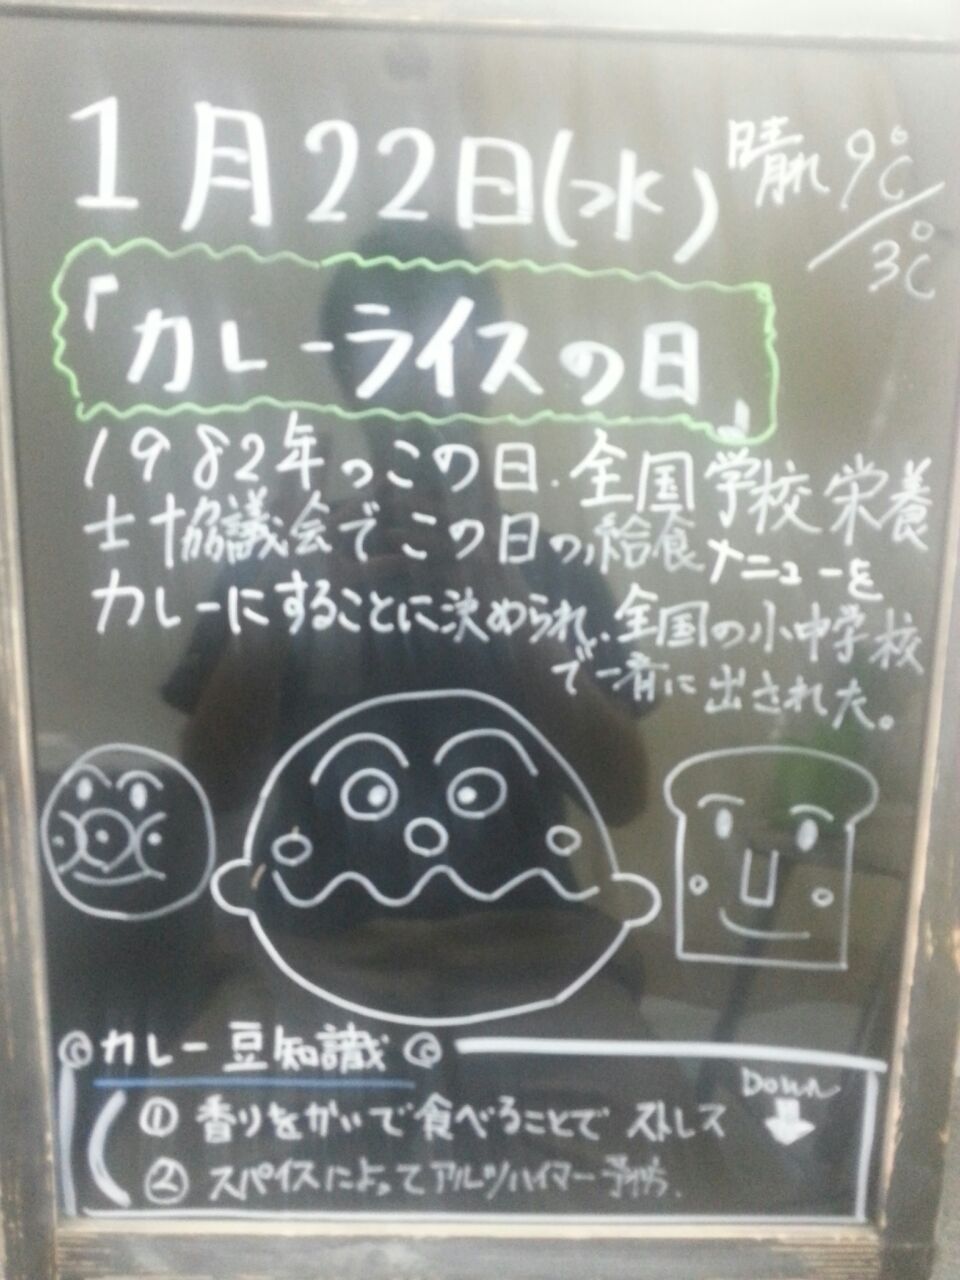 1月22日(水) 晴れ 9℃/3℃
「カレーライスの日」
1982年っこの日.全国学校栄養
士協議会でこの日の,給食メニューを
カレーにすることに決められ.全国の小中学校
で一斉に出された。
カレー豆知識
Down
① 香りをかいで食べることでストレス
② スパイスによってアルツハイマー予防.